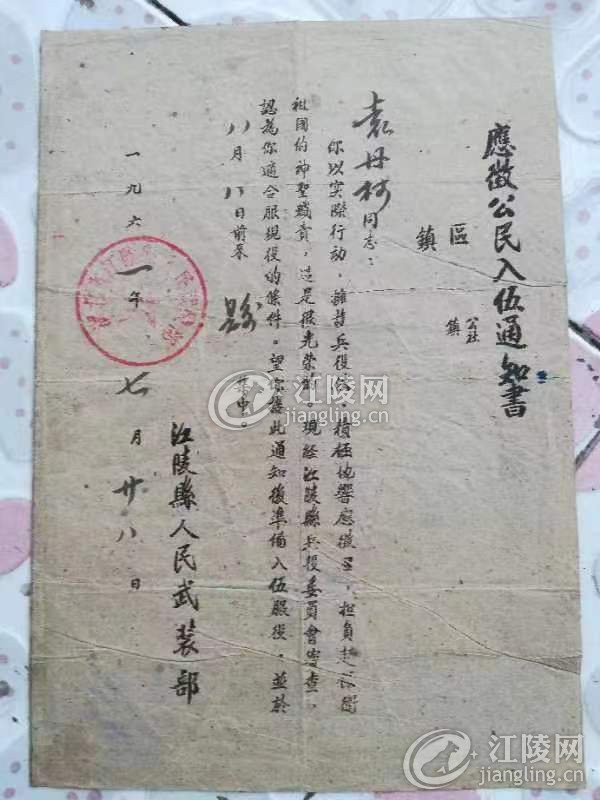 應徵公民入伍通知書
區
鎮
公社
鎮
袁丹柯同志：
你以实際行动，擁护兵役法，積極地響應徵召，担負起保衛
祖國的神聖職責，這是很光荣的。現經江陵縣兵役委員會审查，
認為你適合服現役的條件。望你接此通知後準備入伍服役，並於
八月八日前来 縣 集中。
江陵縣人民武装部
一九六一年七月廿八日
江陵网
jiangling.cn
江陵网
jiangling.cn